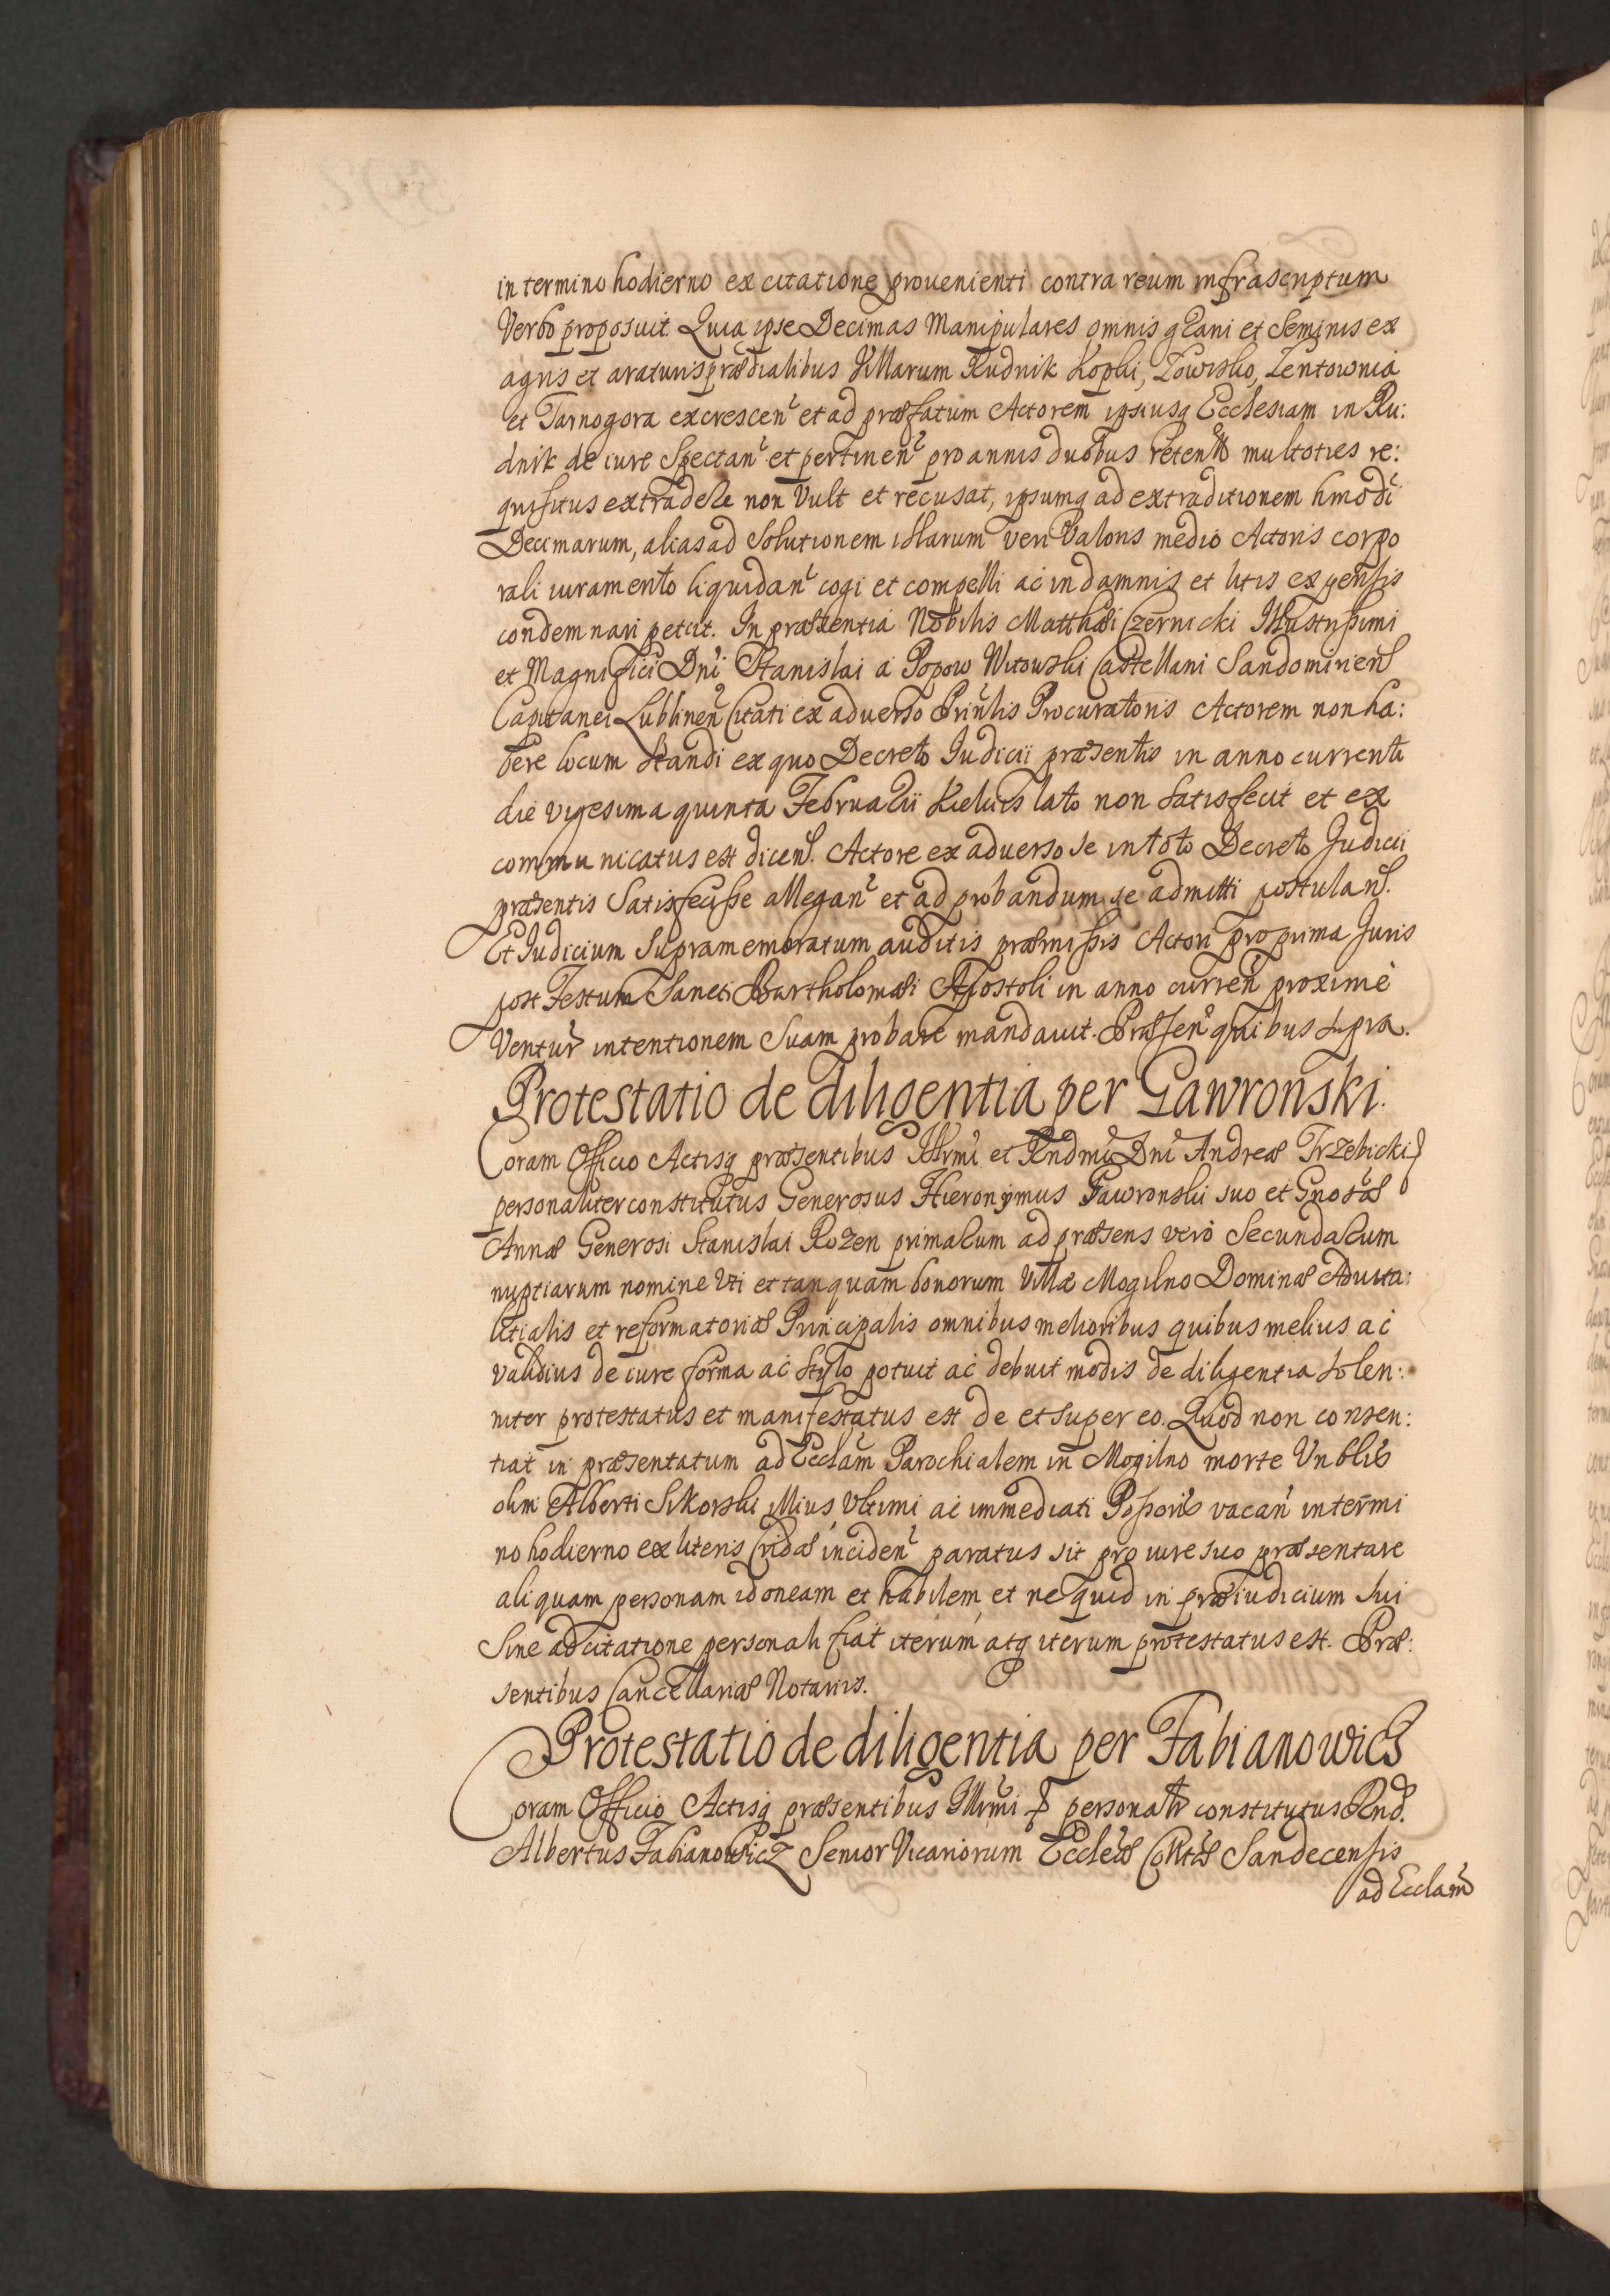 in termino hodierno ex citatione prouenienti contra reum infrascriptum
Verbo proposuit. Quia ipse Decimas Manipulares omnis grani et Seminis ex
agris et araturis prædialibus Villarum Rudnik Kopki, Łowisko, Zentownia
et Tarnogora excrescen͛ et ad præfatum Actorem ipsiusq Ecclesiam in Ru:
dnik de iure Spectan͛ et pertinen͛ pro annis duobus retentas multoties re:
quisitus extradere non Vult et recusat, ipsumq ad extraditionem hmodi
Decimarum, alias ad Solutionem illarum veri Valoris medio Actoris corpo
rali iuramento liquidan͛ cogi et compelli ac in damnis et litis expensis
condemnari petiit. In præsentia Nobilis Matthæi Czernicki Illustrissimi
et Magnifici Dni Stanislai a Popow Witowski Castellani Sandomirien͛
Capitanei Lublinen͛ Citati ex aduerso Prinlis Procuratoris Actorem non ha:
bere locum Standi ex quo Decreto Iudicii præsentis in anno currenti
die vigesima quinta Februarii Kielciis lato non satisfecit et ex
communicatus est dicen͛. Actore ex aduerso se in toto Decreto Judicii
præsentis Satisfecisse allegan͛ et ad probandum se admitti postulan͛.
Et Iudicium Supramemoratum auditis præmissis Actori pro prima Juris
post Festum Sancti Bartholomæi Apostoli in anno curren͛ proximè
Ventur͛ intentionem Suam probare mandauit. Præsen͛ quibus supra.
Protestatio de diligentia per Gawronski.
Coram Officio Actisq præsentibus Illrmi et Rndmi Dni Andreæ Trzebicki
personaliter constitutus Generosus Hieronymus Gawronski suo et Gnosæ
Annæ Generosi Stanislai Rozen primarum ad præsens verò Secundarum
nuptiarum nomine Uti et tanquam bonorum Villæ Mogilno Dominæ Aduita:
litialis et reformatoriæ Principalis omnibus melioribus quibus melius ac
validius de iure forma ac stylo potuit ac debuit modis de diligentia solen:
niter protestatus et manifestatus est de et super eo. Quod non consen:
tiat in præsentatum ad Ecclam Parochialem in Mogilno morte Vnblis
olim Alberti Sikorski illius Vltimi ac immediati Possoris vacan͛ in termi
no hodierno ex literis Cridæ inciden͛ paratus sit pro iure suo præsentare
aliquam personam idoneam et habilem, et ne quid in præiudicium sui
Sine adcitatione personali fiat iterum atq iterum protestatus est. Præ:
sentibus Cancellariæ Notariis.
Protestatio de diligentia per Fabianowicz
Coram Officio Actisq præsentibus Illrmi personalr constitutus Rnd.
Albertus Fabianowicz Senior Vicariorum Eccleæ Colltæ Sandecensis
ad Ecclam